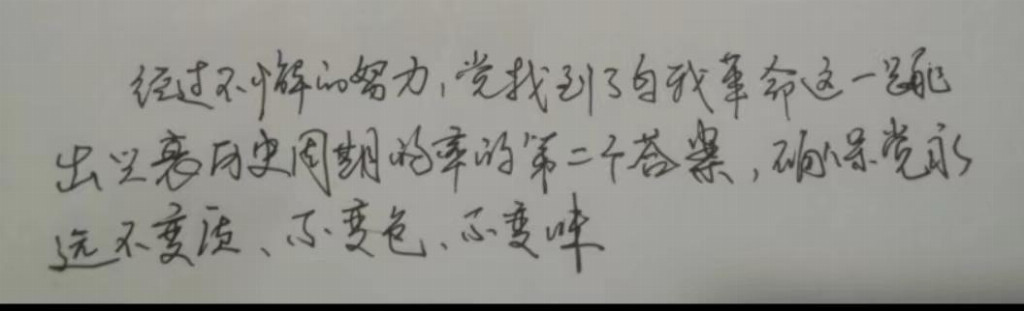 经过不懈的努力,党找到了自我革命这一跳
出兴衰历史周期的率的第二个答案,确保党永
远不变质、不变色、不变味